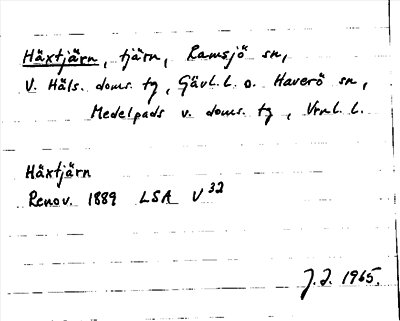 Häxtjärn, tjärn, Ramsjö sn,
V. Häls. doms. tg, Gävl. l. o. Haverö sn,
Medelpads v. doms. tg, Vrnl. l.
Häxtjärn
Renov. 1889 LSA V 32
J. J. 1965.